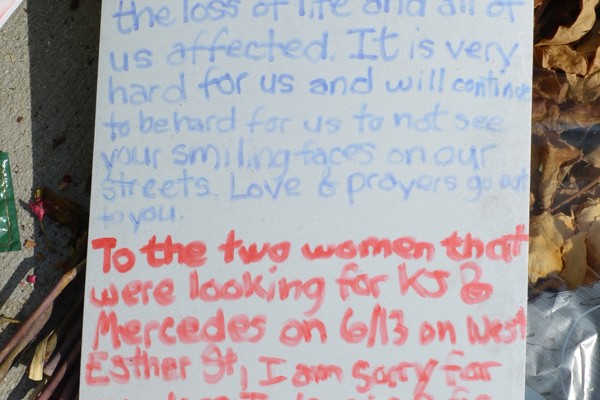 the loss of life and all of
us affected. It is very
hard for us and will continue
to be hard for us to not see
your smiling faces on our
streets. Love & prayers go out
to you.
To the two women that
were looking for KJ &
Mercedes on 6/13 on West
Esther St, I am sorry for